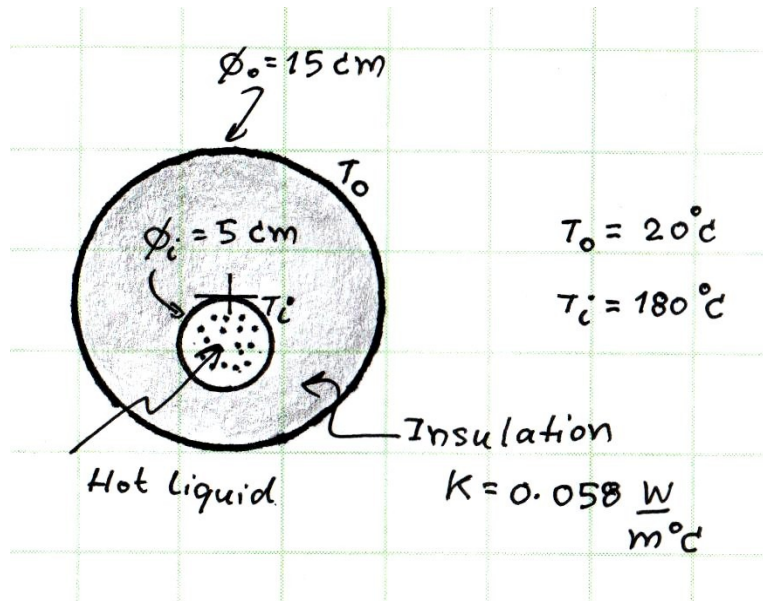 ϕₒ = 15 cm
Tₒ
ϕᵢ = 5 cm
Tᵢ
Tₒ = 20°C
Tᵢ = 180°C
Insulation
Hot liquid
K = 0.058 W
m°C